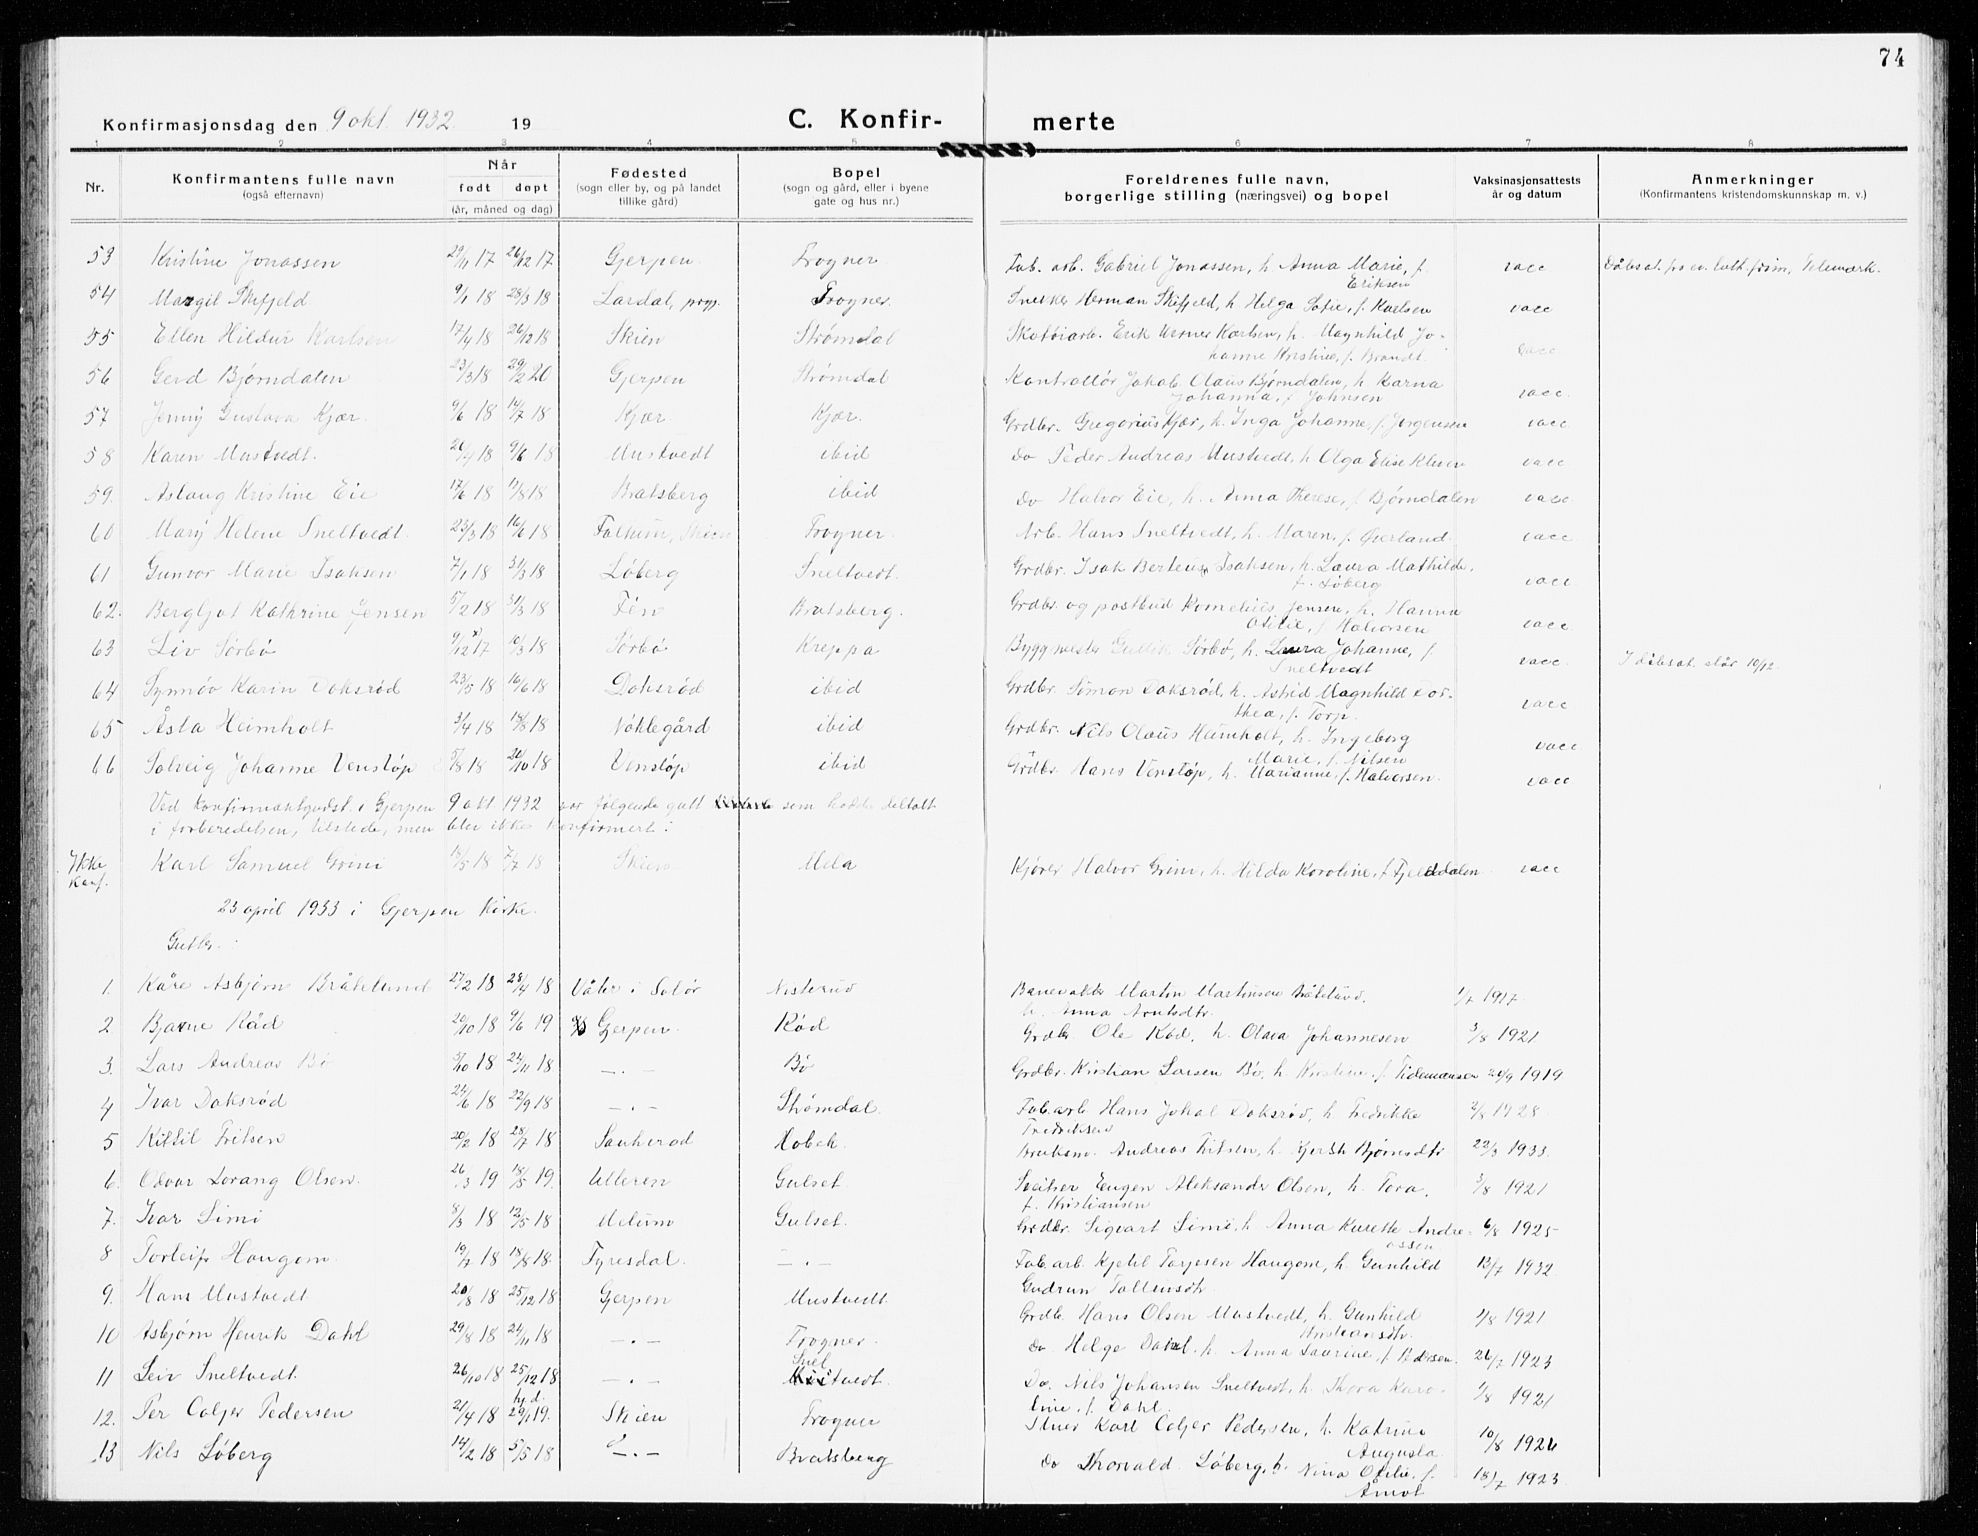 74
Konfirmasjonsdag den 9 okt. 1932. 19
C. Konfir- merte
1 2 3 4 5 6 7 8
Nr. Konfirmantens fulle navn (også efternavn) Når født døpt (år, måned og dag) Fødested (sogn eller by, og på landet tillike gård) Bopel (sogn og gård, eller i byene gate og hus nr.) Foreldrenes fulle navn, borgerlige stilling (næringsvei) og bopel Vaksinasjonsattests år og datum Anmerkninger (Konfirmantens kristendomskunnskap m. v.)
53 Kristine Jonassen 29/11 17 26/12 17 Gjerpen. Frogner. Fab. arb. Gabriel Jonassen, h. Anna Marie, f. Eriksen vacc Dåbsat. fra ev. luth. frim, Telemark.
54 Margit Skifjeld 9/1 18 28/3 18 Lardal, Frogner. Snekker Herman Skifjeld, h Helga Sofie, f. Karlsen vacc
55 Ellen Hildur Karlsen 17/4 18 26/12 18 Skien Strømdal Skotøiarb. Erik Verner Karlsen, h. Magnhild Jo-
hanne Kristine, f. Brandt vacc
56 Gerd Bjørndalen 23/3 18 29/2 20 Gjerpen Strømdal Kontrollør Jakob Olaus Bjørndalen, h Karna
Johanna, f Johnsen vacc.
57 Jenny Gustava Kjær. 9/6 18 14/7 18 Kjær. Kjær. Grdbr. Gregorius Kjær, h. Inga Johanne, f Jørgensen vacc
58 Karen Mustvedt. 26/4 18 9/6 18 Mustvedt ibid Do Peder Andreas Mustvedt, h Olga Elise Kleven vacc
59. Aslaug Kristine Eie 17/6 18 11/8 18 Bratsberg ibid Do Halvor Eie, h. Anna Therese, f Bjørndalen vacc
60 Mary Helene Sneltvedt. 23/3 18 16/6 18 Falkum, Skien Frogner. Arb. Hans Sneltvedt, h. Maren, f. Øverland vacc
61 Gunvor Marie Isaksen 7/1 18 31/3 18 Løberg Sneltvedt. Grdbr. Isak Berteus Isaksen, h. Laura Mathilde,
f. Løberg vacc
62. Bergljot Kathrine Jensen 5/2 18 31/3 18 Fén Bratsberg. Grdbr. og postbud Kornelius Jensen, h. Hanna
Otilie, f Halvorsen vacc
63 Liv Sørbø 9/12 17 10/3 18 Sørbø Kreppa Byggmester Gullik Sørbø, h. Laura Johanne, f.
Sneltvedt vacc. I dåbsat. står 10/12.
64 Synnøv Karin Doksrød 23/5 18 16/6 18 Doksrød ibid Grdbr. Simon Doksrød, h. Astrid Magnhild Dor-
thea, f. Torp. vacc
65 Åsta Heimholt 3/4 18 18/8 18 Nøklegård ibid Grdbr. Nils Olaus Heimholt, h. Ingeborg
Marie, f. Nilsen vacc
66 Solveig Johanne Venstøp 5/8 18 20/10 18 Venstøp ibid Grdbr. Hans Venstøp, h. Marianne, f. Halvorsen. vacc
Ved konfirmantgudst. i Gjerpen 9 okt 1932 var følgende gutt som hadde deltatt
i forberedelsen, tilstede, men blev ikke konfirmert:
Ikke konf. Karl Samuel Grini 18/5 18 7/7 18 Skien Mela Kjører Halvor Grini, h. Hilda Karoline, f Fjelddalen vacc
23 april 1933 i Gjerpen kirke.
Gutter:
1. Kåre Asbjørn Bråtelund 27/2 18 28/4 18 Våler i Solør Nisterud Banevokter Martin Martinsen Bråtelund,
h. Anna Arntsdtr. 1/7 1917
2 Bjarne Rød 20/10 18 9/6 19 Gjerpen. Rød Grdbr Ole Rød, h. Olava Johannesen 3/8 1921
3. Lars Andreas Bø 5/10 18 24/11 18 —.— Bø Grdbr. Kristian Larsen Bø, h Kirstine f. Tidemansen 20/9 1919
4 Ivar Doksrød 24/6 18 22/9 18 —.— Strømdal. Fab.arb Hans Johal Doksrød, h Fredrikke
Fredriksen 2/8 1928
5 Kittil Fritsen 20/2 18 28/7 18 Sauherad Hobek. Bruksm. Andreas Fritsen, h. Kjersti Bjørnsdtr 22/3 1933.
6. Odvar Lorang Olsen. 26/3 19 18/5 19. Ulleren Gulset. Sveitser Eugen Aleksander Olsen, h. Tora,
f. Kristiansen 3/8 1921
7. Ivar Limi 8/3 18 12/5 18 Melum Gulset. Grdbr. Sigvart Limi, h Anna Kirette Andre-
assen 6/8 1925
8 Torleif Haugom. 19/7 18 18/8 18 Fyresdal. —.— Fab.arb. Kjetil Torjesen Haugom, h. Gunhild
Gudrun Tallensdtr. 13/7 1932
9. Hans Mustvedt 20/8 18 25/12 18 Gjerpen Mustvedt. Grdbr. Hans Olsen Mustvedt, h. Gunhild
Kristiansdtr. 2/8 1921
10 Asbjørn Henrik Dahl 29/8 18 24/11 18 —.— Frogner. Do Helge Dahl, h. Anna Laurine, f Pedersen. 26/7 1923
11 Leiv Sneltvedt. 26/10 18 25/12 18 —.— Snel tvedt. Do. Nils Johansen Sneltvedt, h. Thora Karo-
line, f. Dahl. 2/8 1921
12. Per Coljer Pedersen 21/4 18 hj.d. 29/1 19. Skien Frogner Stuer Karl Coljer Pedersen, h Katrine
Augusta 10/8 1926
13 Nils Løberg 14/2 18 5/5 18 —.— Bratsberg Do Thorvald Løberg, h. Nina Otilie, f.
Åmot 18/7 1923